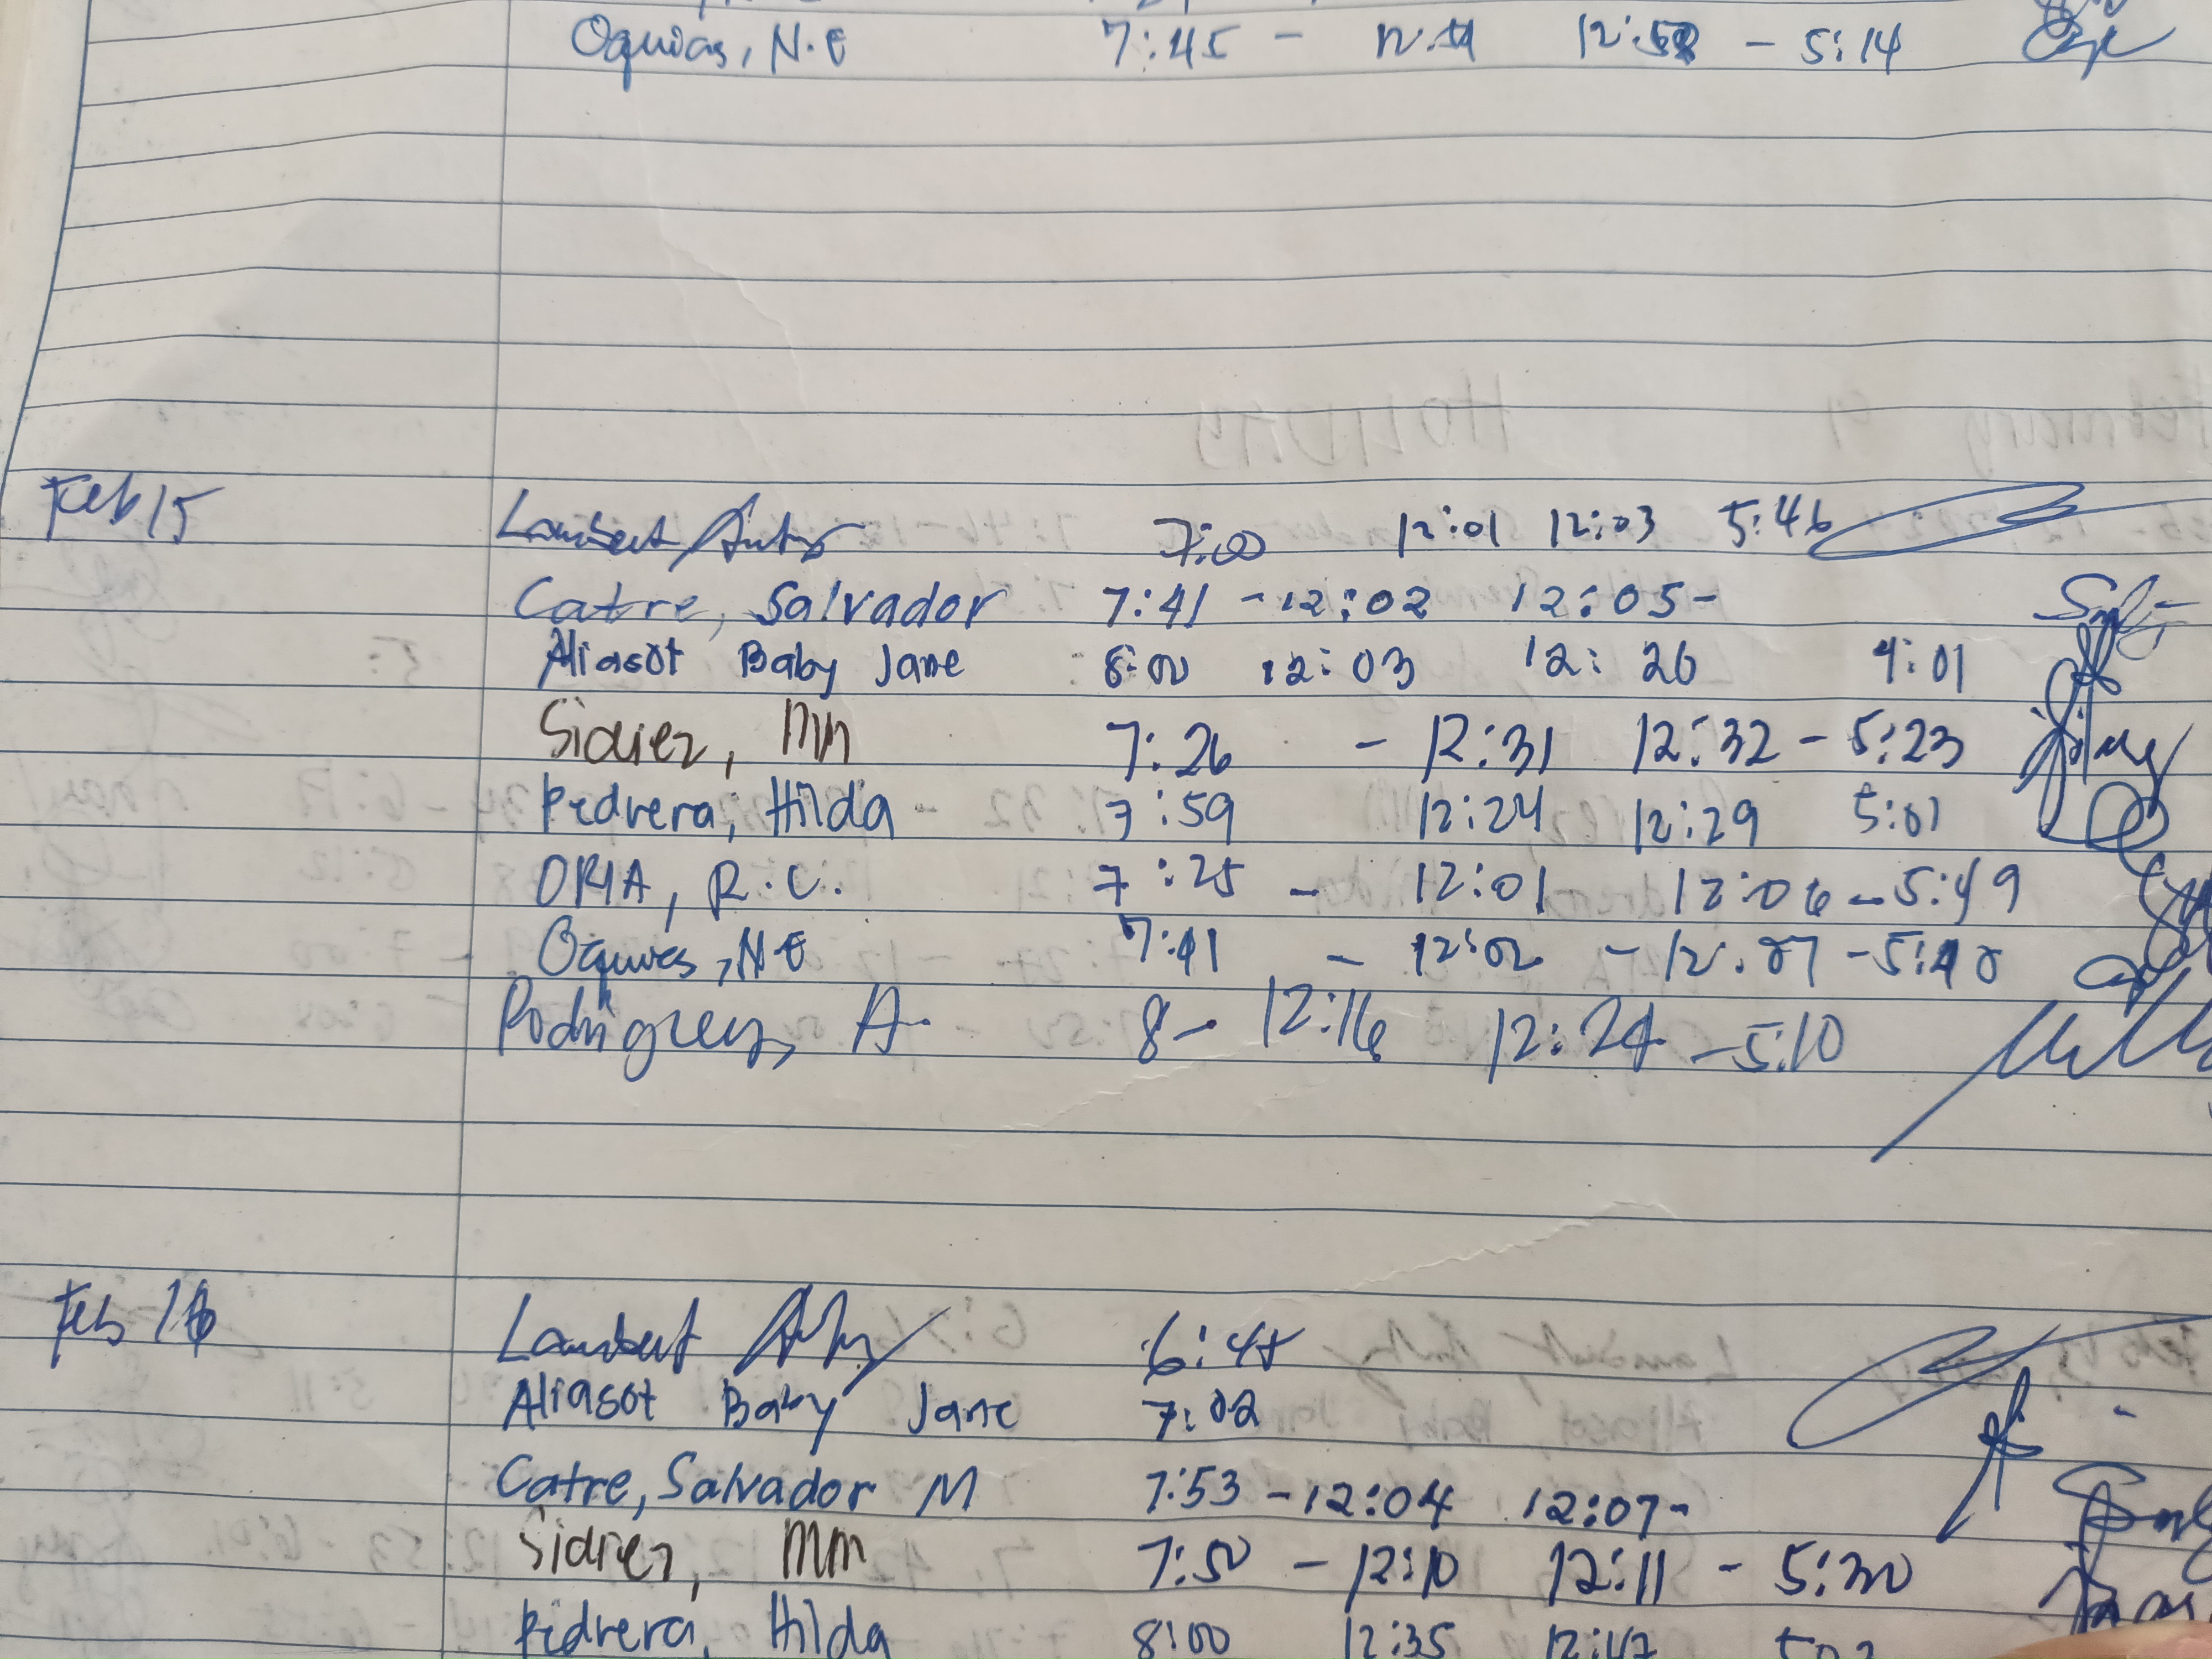 Oquias, N.E 7:45 - 12:58 - 5:14
Feb 15
Lambert 7:00 12:01 12:03 5:46
Catre, Salvador 7:41 - 12:02 12:05-
Aliasot Baby Jane 8:00 12:03 12:26 4:01
Sidiez, MM 7:26 - 12:31 12:32 - 5:23
Pedrera, Hilda 7:59 12:24 12:29 5:01
ORIA, R.C. 7:25 - 12:01 12:06 - 5:49
Oquias, N.E 7:41 - 12:02 - 12:07 -
Rodriguez, A. 8 - 12:16 12:24 - 5:10
Feb 16
Lambert 6:48
Aliasot Baby Jane 7:02
Catre, Salvador M 7:53 - 12:04 12:07-
Sidiez, MM 7:50 - 12:10 12:11 - 5:30
Pedrera, Hilda 8:00 12:35 12:47